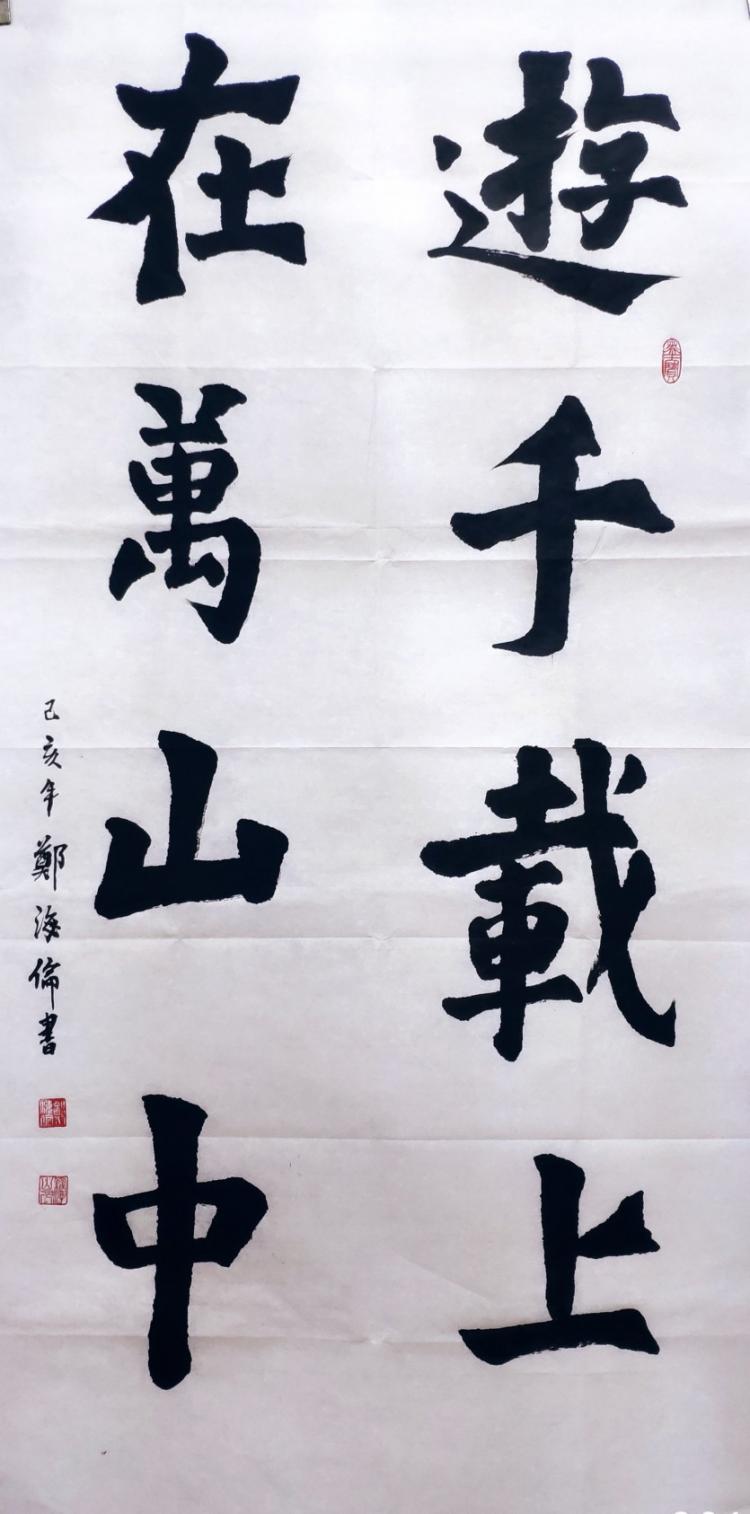 遊千載上
在萬山中
己亥年鄭海倫書